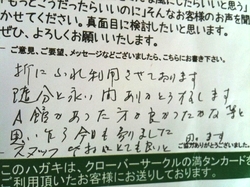 「もっとこうだったらいいのに」そんなお客様の声を聞
かせてください。真面目に検討したいと思います。
ぜひ、よろしくお願いいたします。
ご意見、ご要望、メッセージなどございましたら、こちらにお書き下さい。
折にふれ利用させております
随分と永い間ありがとうございます
A館があった方が良かったかな等と
思い
今も参りました
スタッフ
思います
ご協力ありがとうございました
このハガキは、クローバーサークルの満タンカードを
ご利用頂いたお客様にお送りしております。